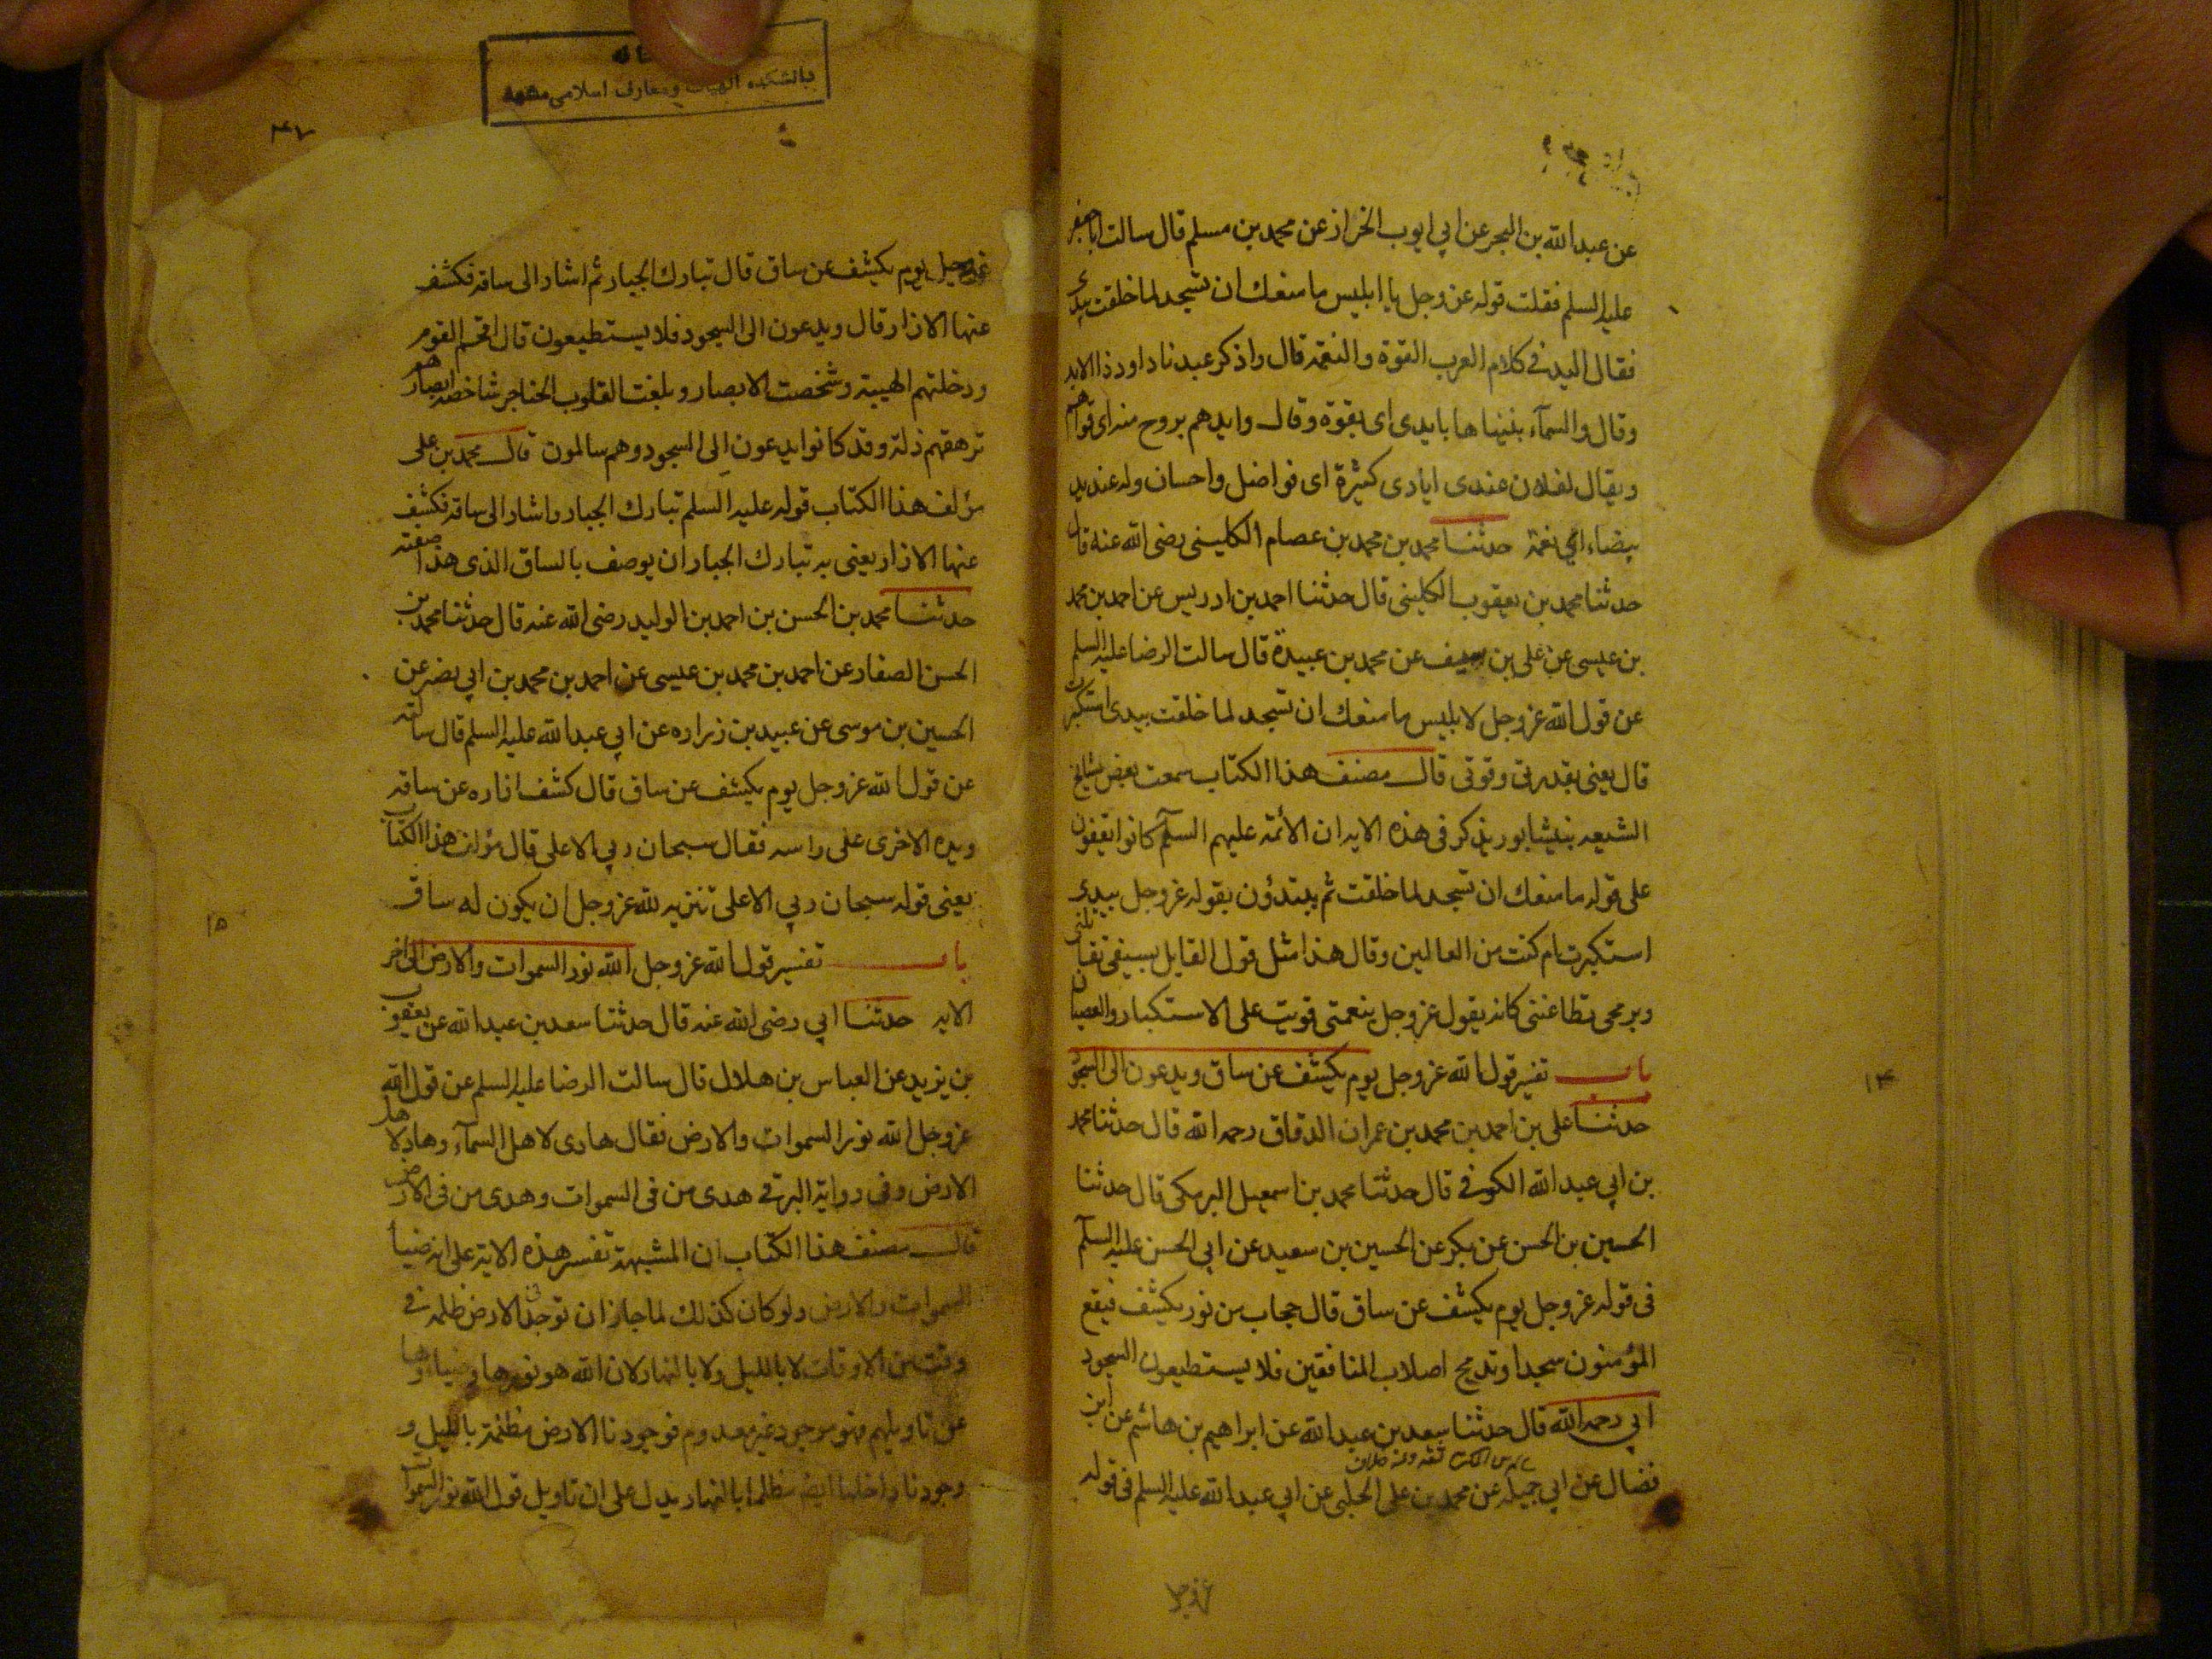 عن عبد الله بن البحر عن ابي ايوب الخزاز عن محمد بن مسلم قال سالت ابا جعفر
عليه السلم فقلت قوله عز وجل يا ابليس ما منعك ان تسجد لما خلقت بيدي
فقال اليد في كلام العرب القوة والنعمة قال واذكر عبدنا داود ذا الايد
وقال والسمآء بنيناها بايدى اى بقوة وقال وايدهم بروح منه اى قواهم
ويقال لفلان عندى ايادى كثيرة اى فواضل واحسان وله عندى يد
بيضاء اى نعمة حدثنا محمد بن محمد بن عصام الكلينى رضى الله عنه قال
حدثنا محمد بن يعقوب الكلينى قال حدثنا احمد بن ادريس عن احمد بن محمد
بن عيسى عن على بن سيف عن محمد بن عبيدة قال سالت الرضا عليه السلم
عن قول الله عز وجل لابليس ما منعك ان تسجد لما خلقت بيدى استكبرت
قال يعنى بقدرتى وقوتى قال مصنف هذا الكتاب سمعت بعض مشايخ
الشيعه بنيشابور يذكر فى هذه الايه ان الائمة عليهم السلم كانوا يقفون
على قوله ما منعك ان تسجد لما خلقت ثم يبتدؤن بقوله عز وجل بيدى
استكبرت ام كنت من العالين وقال هذا مثل قول القايل بسيفى تقاتلنى
وبرمحى تطاعننى كانه يقول عز وجل بنعمتى قويت على الاستكبار والعصيان
باب تفسير قول الله عز وجل يوم يكشف عن ساق ويدعون الى السجود
حدثنا على بن احمد بن محمد بن عمران الدقاق رحمه الله قال حدثنا محمد
بن ابي عبد الله الكوفي قال حدثنا محمد بن اسمعيل البرمكى قال حدثنا
الحسين بن الحسن عن بكر عن الحسين بن سعيد عن ابي الحسن عليه السلم
فى قوله عز وجل يوم يكشف عن ساق قال حجاب من نور يكشف فيقع
المؤمنون سجدا وتدمج اصلاب المنافقين فلا يستطيعون السجود
ابي رحمه الله قال حدثنا سعد بن عبد الله عن ابراهيم بن هاشم عن ابن
فضال عن ابي جميله عن محمد بن على الحلبى عن ابي عبد الله عليه السلم فى قوله
عز وجل
١٤
دانشكده الهيات ومعارف اسلامى مشهد
٤٧
عز وجل يوم يكشف عن ساق قال تبارك الجبار ثم اشار الى ساقه فكشف
عنها الازار قال ويدعون الى السجود فلا يستطيعون قال افحم القوم
ودخلتهم الهيبة وشخصت الابصار وبلغت القلوب الحناجر شاخصة ابصارهم
ترهقهم ذلة وقد كانوا يدعون الى السجود وهم سالمون قال محمد بن على
مؤلف هذا الكتاب قوله عليه السلم تبارك الجبار واشار الى ساقه فكشف
عنها الازار يعنى به تبارك الجبار ان يوصف بالساق الذى هذا صفته
حدثنا محمد بن الحسن بن احمد بن الوليد رضى الله عنه قال حدثنا محمد بن
الحسن الصفار عن احمد بن محمد بن عيسى عن احمد بن محمد بن ابي نصر عن
الحسين بن موسى عن عبيد بن زراره عن ابي عبد الله عليه السلم قال سالته
عن قول الله عز وجل يوم يكشف عن ساق قال كشف ازاره عن ساقه
ويده الاخرى على راسه فقال سبحان ربي الاعلى قال مؤلف هذا الكتاب
يعنى قوله سبحان ربي الاعلى تنزيه لله عز وجل ان يكون له ساق
باب تفسير قول الله عز وجل الله نور السموات والارض الى اخر
الايه حدثنا ابي رضى الله عنه قال حدثنا سعد بن عبد الله عن يعقوب
بن يزيد عن العباس بن هلال قال سالت الرضا عليه السلم عن قول الله
عز وجل الله نور السموات والارض فقال هادى لاهل السمآء وهاد لاهل
الارض وفى رواية البرقي هدى من فى السموات وهدى من فى الارض
قال مصنف هذا الكتاب ان المشبهة تفسر هذه الاية على انه ضيآ
السموات والارض ولو كان كذلك لما جاز ان توجد الارض مظلمه فى
وقت من الاوقات لا بالليل ولا بالنهار لان الله هو نورها وضياؤها
على تاويلهم فهو موجود غير معدوم فوجودنا الارض مظلمة بالليل و
وجودنا داخلها ايضا مظلما بالنهار يدل على ان تاويل قول الله نور السموات
١٥